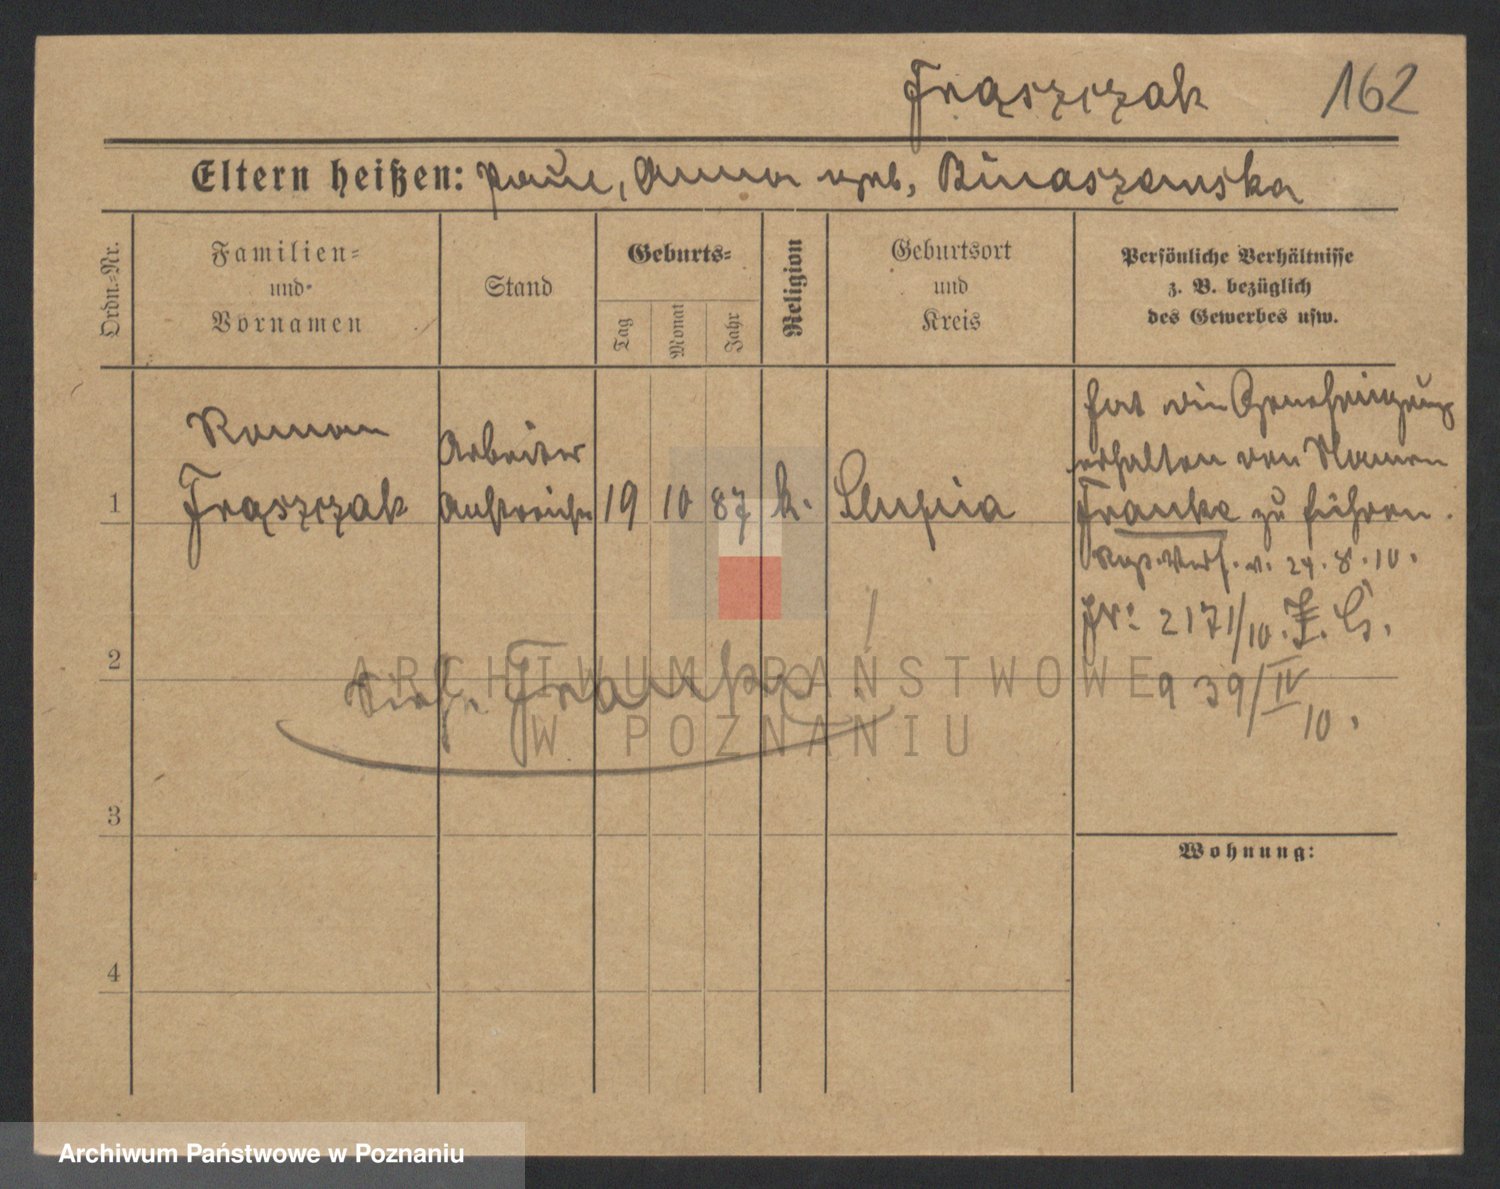 Frąszczak 162
Eltern heißen: Paul, Anna geb. Binaszewska
Ordn.-Nr.
Familien-
und-
Vornamen
Stand
Geburts-
Tag
Monat
Jahr
Religion
Geburtsort
und
Kreis
Persönliche Verhältnisse
z. B. bezüglich
des Gewerbes usw.
Roman
Frąszczak
Arbeiter
Anstreicher
1
19 10 87 k. Slupia
hat die Genehmigung
erhalten den Namen
Franke zu führen.
Reg. Verf. v. 24.8.10.
Nr. 2171/10. I. G.
939/IV
10.
2
Siehe Franke!
3
Wohnung:
4
ARCHIWUM PAŃSTWOWE
W POZNANIU
Archiwum Państwowe w Poznaniu